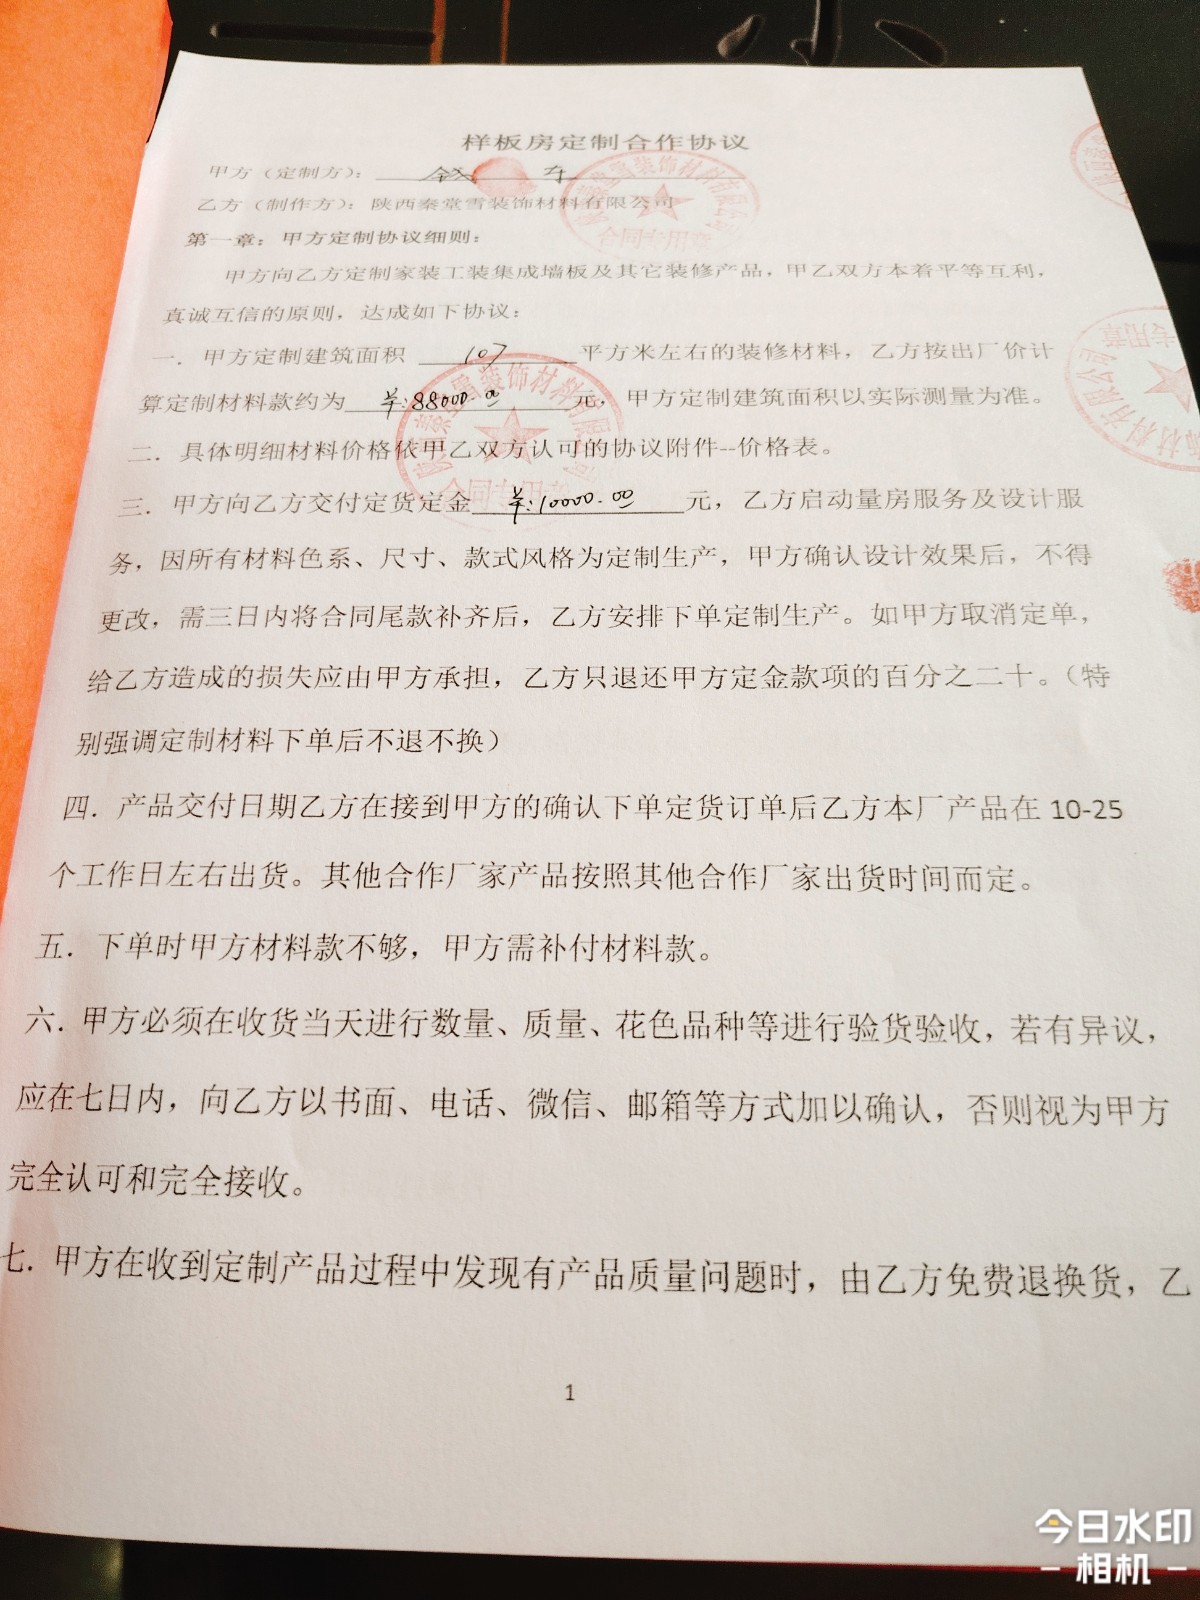 样板房定制合作协议
甲方（定制方）：
乙方（制作方）：陕西秦堂雪装饰材料有限公司
第一章：甲方定制协议细则：
甲方向乙方定制家装工装集成墙板及其它装修产品，甲乙双方本着平等互利，
真诚互信的原则，达成如下协议：
一．甲方定制建筑面积 107 平方米左右的装修材料，乙方按出厂价计
算定制材料款约为 ¥:88000.00 元，甲方定制建筑面积以实际测量为准。
二．具体明细材料价格依甲乙双方认可的协议附件--价格表。
三．甲方向乙方交付定货定金 ¥:10000.00 元，乙方启动量房服务及设计服
务，因所有材料色系、尺寸、款式风格为定制生产，甲方确认设计效果后，不得
更改，需三日内将合同尾款补齐后，乙方安排下单定制生产。如甲方取消定单，
给乙方造成的损失应由甲方承担，乙方只退还甲方定金款项的百分之二十。（特
别强调定制材料下单后不退不换）
四．产品交付日期乙方在接到甲方的确认下单定货订单后乙方本厂产品在 10-25
个工作日左右出货。其他合作厂家产品按照其他合作厂家出货时间而定。
五．下单时甲方材料款不够，甲方需补付材料款。
六．甲方必须在收货当天进行数量、质量、花色品种等进行验货验收，若有异议，
应在七日内，向乙方以书面、电话、微信、邮箱等方式加以确认，否则视为甲方
完全认可和完全接收。
七．甲方在收到定制产品过程中发现有产品质量问题时，由乙方免费退换货，乙
1
合同专用章
今日水印
相机